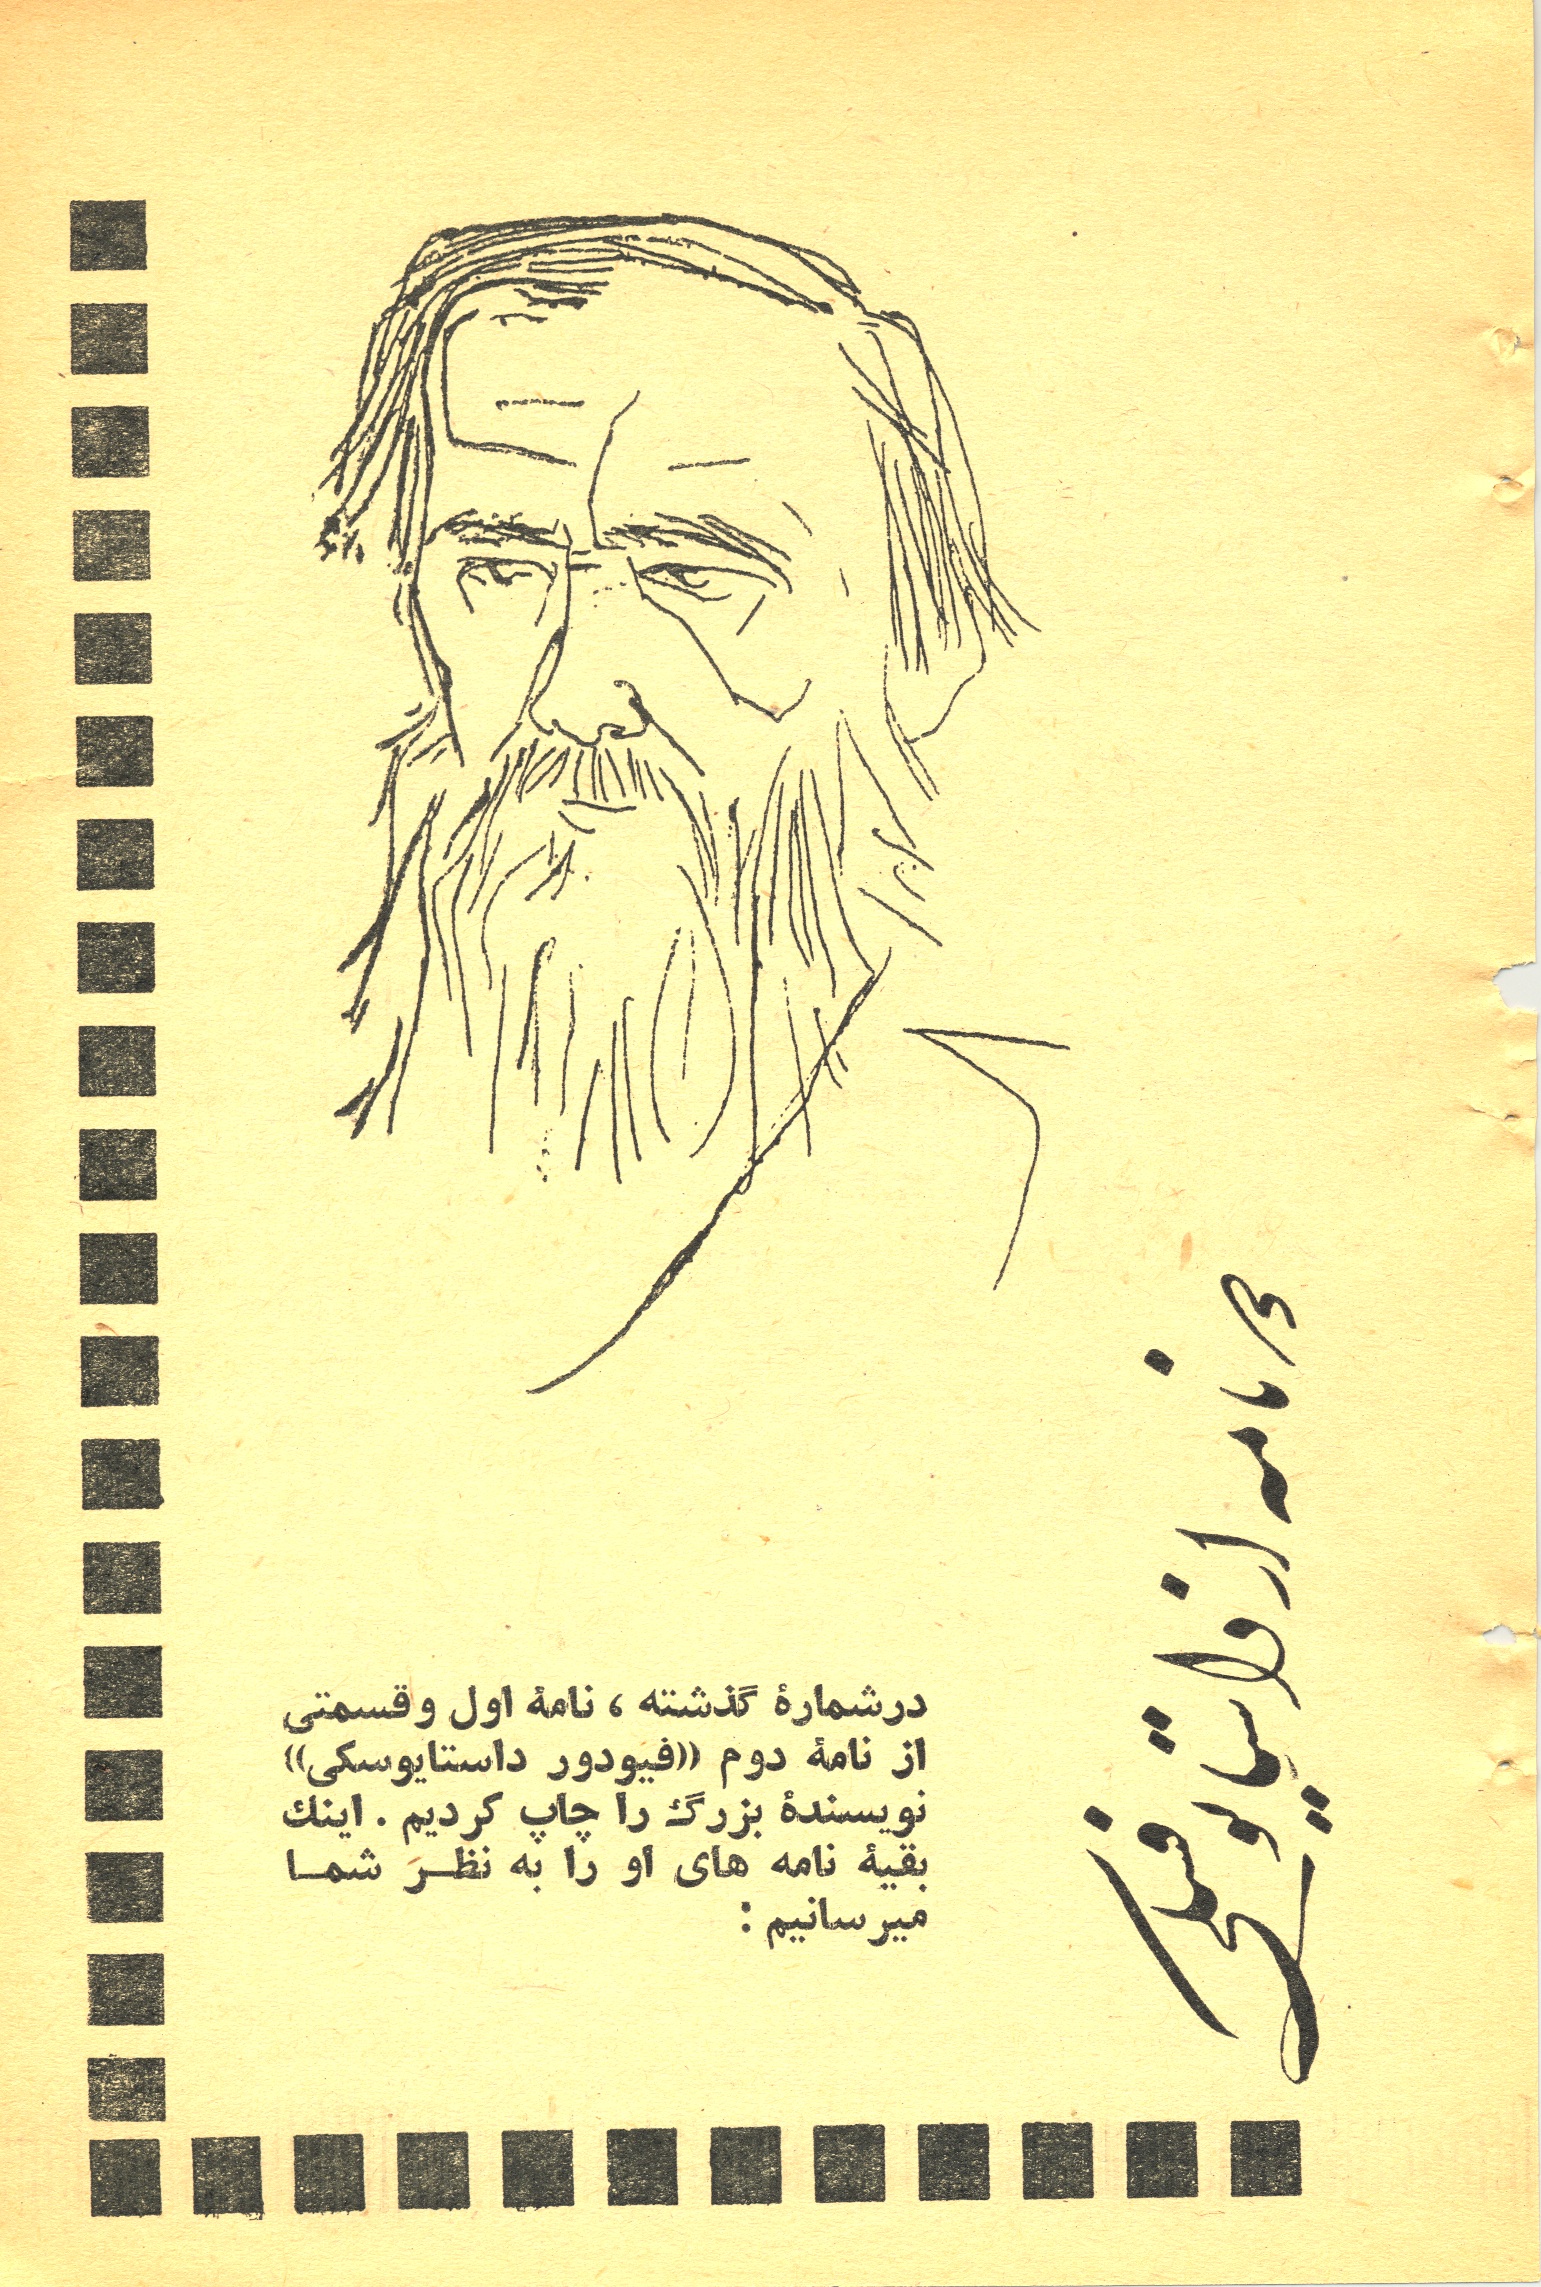 نامه از داستایوفسکی
درشمارهٔ گذشته ، نامهٔ اول و قسمتی
از نامهٔ دوم «فیودور داستایوسکی»
نویسندهٔ بزرگ را چاپ کردیم . اینك
بقیهٔ نامه های او را به نظـر شمـا
میرسانیم :